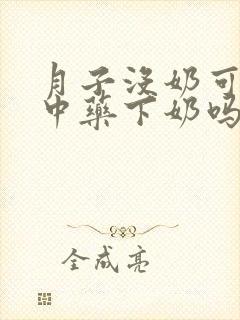 月子没奶可
中药下奶吗
全成亮